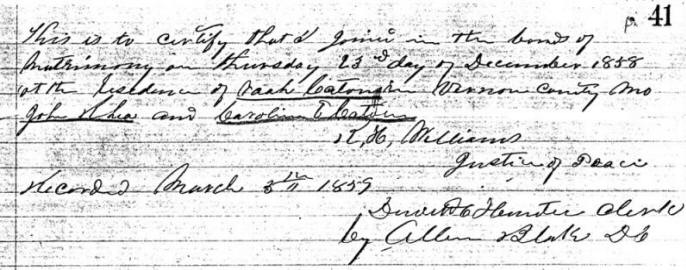 p. 41
This is to certify that I joined in the bonds of
Matrimony on Thursday 23rd day of December 1858
at the residence of Catong in Vernon county Mo
John Rhea and Caroline E
R, H, Williams
Justice of Peace
Recorded March 3rd 1859
Hunter Clerk
by Allen Blake DC